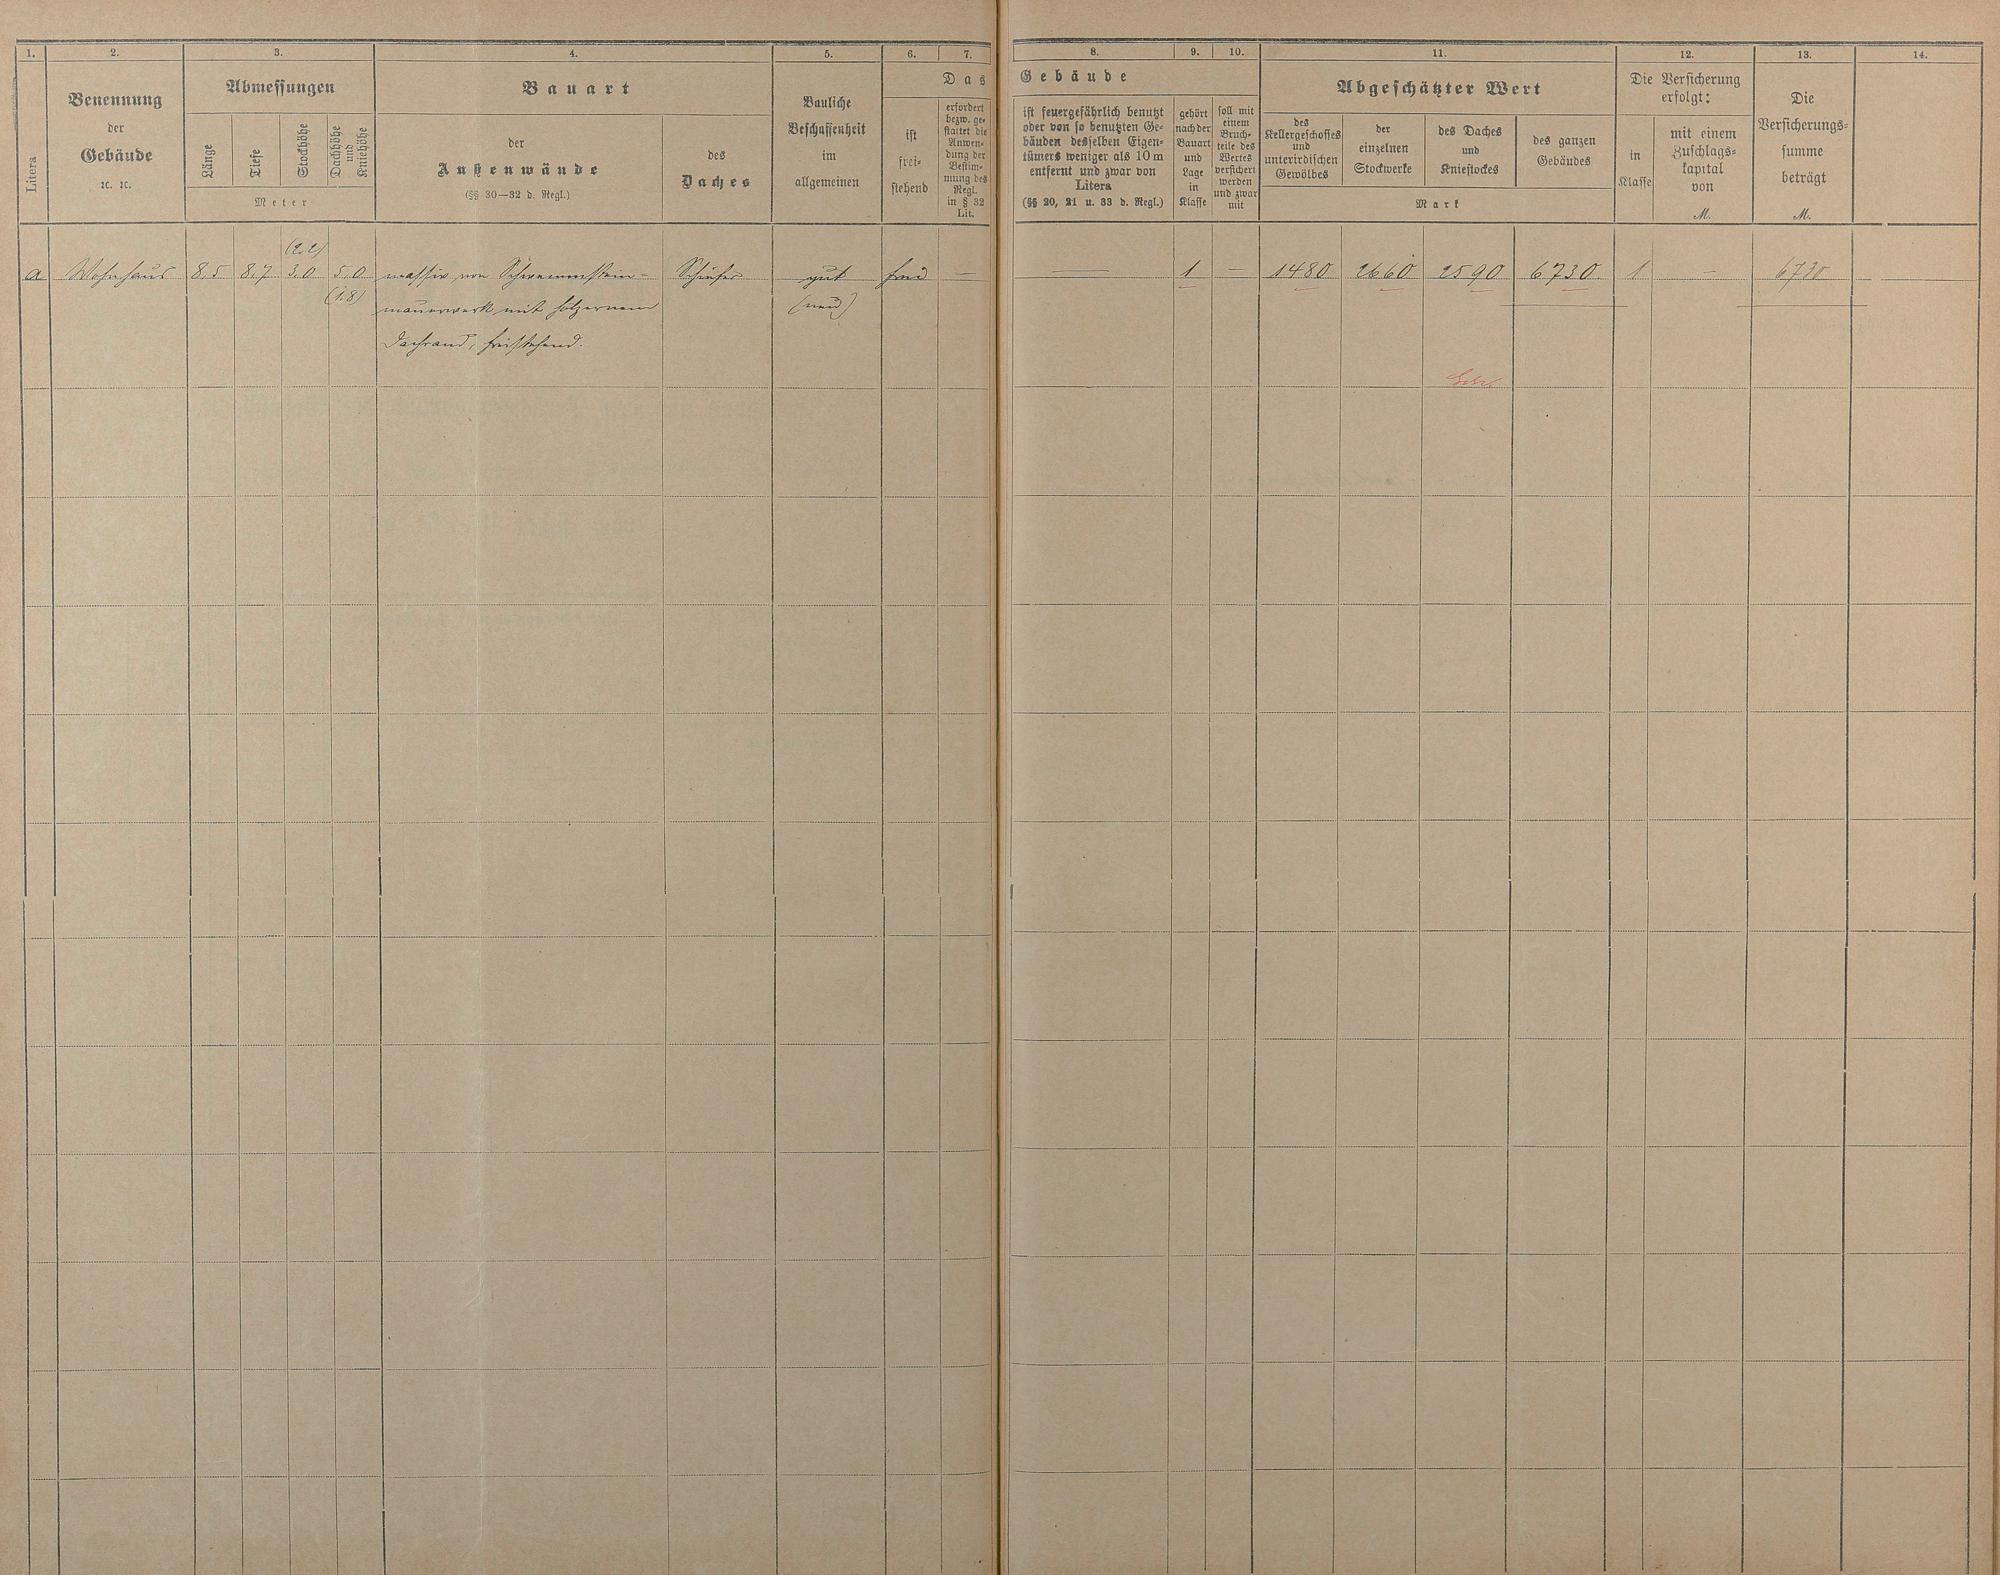 1. 2. 3. 4. 5. 6. 7. 8. 9. 10. 11. 12. 13. 14.
Litera
Benennung
der
Gebäude
ꝛc. ꝛc.
Abmessungen
Länge
Tiefe
Stockhöhe
Dachhöhe
und
Kniehöhe
Meter
Bauart
der
Außenwände
(§§ 30—32 d. Regl.)
des
Daches
Bauliche
Beschaffenheit
im
allgemeinen
Das Gebäude
ist
frei-
stehend
erfordert
bezw. ge-
stattet die
Anwen-
dung der
Bestim-
mung des
Regl.
in § 32
Lit.
ist feuergefährlich benutzt
oder von so benutzten Ge-
bäuden desselben Eigen-
tümers weniger als 10 m
entfernt und zwar von
Litera
(§§ 20, 21 u. 33 d. Regl.)
gehört
nach der
Bauart
und
Lage
in
Klasse
soll mit
einem
Bruch-
teile des
Wertes
versichert
werden
und zwar
mit
Abgeschätzter Wert
des
Kellergeschosses
und
unterirdischen
Gewölbes
der
einzelnen
Stockwerke
des Daches
und
Kniestockes
des ganzen
Gebäudes
Mark
Die Versicherung
erfolgt:
in
Klasse
mit einem
Zuschlags-
kapital
von
M.
Die
Versicherungs-
summe
beträgt
M.
(2.2)
a Wohnhaus 8,5 8,7 3,0 5,0 massiv von Schwemmstein- Schiefer gut frei — — 1 — 1480 2660 2590 6730 1 — 6730
(1.8) mauerwerk mit hölzernem (neu)
Dachrand, freistehend.